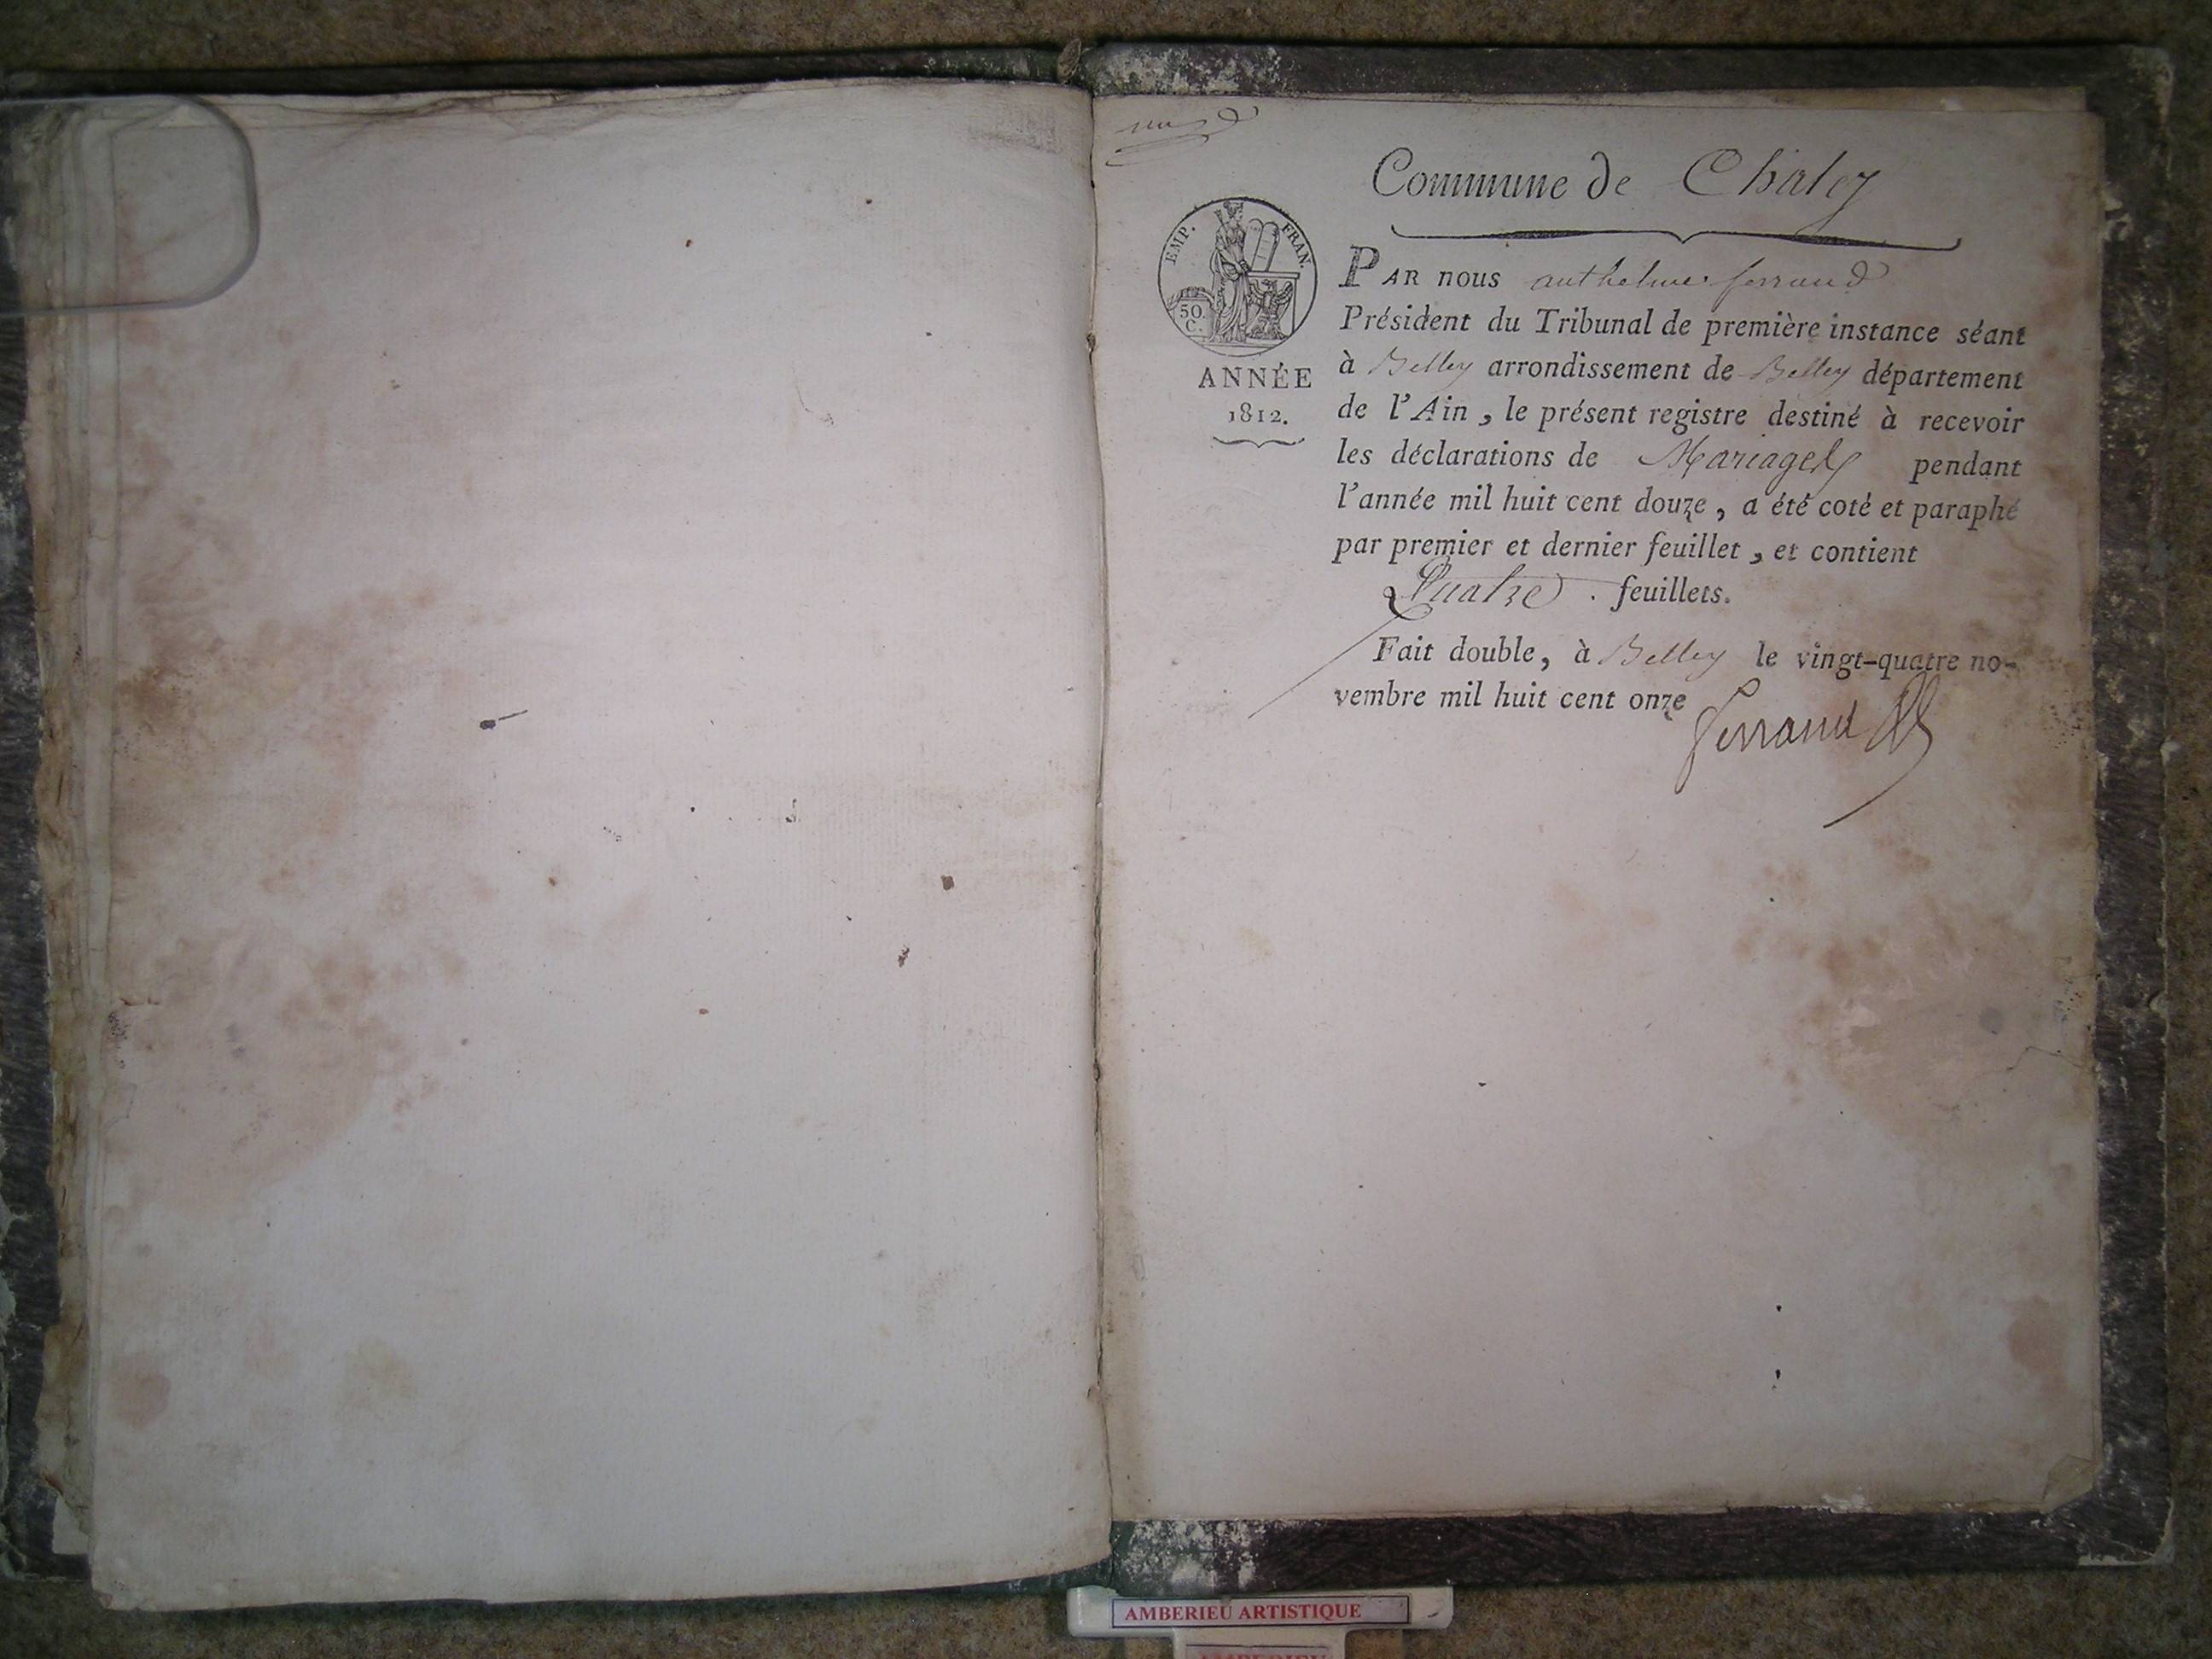 Commune de Chaley
EMP. FRAN.
50. C.
ANNÉE
1812.
PAR nous anthelme ferrand
Président du Tribunal de première instance séant
à Belley arrondissement de Belley département
de l'Ain, le présent registre destiné à recevoir
les déclarations de Mariages pendant
l'année mil huit cent douze, a été coté et paraphé
par premier et dernier feuillet, et contient
Quatre feuillets.
Fait double, à Belley le vingt-quatre no-
vembre mil huit cent onze
ferrand
AMBERIEU ARTISTIQUE
AMBERIEU